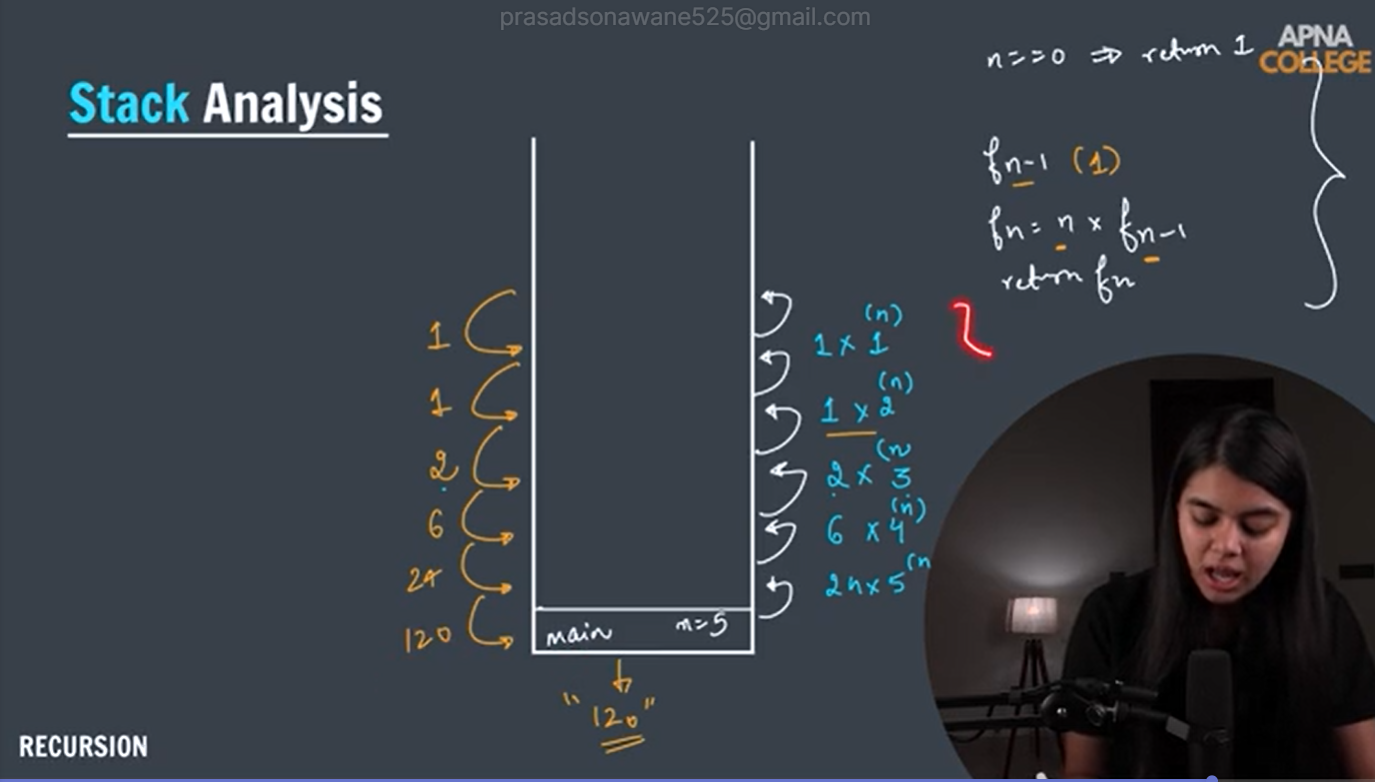 prasadsonawane525@gmail.com
n==0 ⇒ return 1
APNA
COLLEGE
Stack Analysis
fn-1 (1)
fn = n × fn-1
return fn
1
1
2
6
24
120
(n)
1 × 1
(n)
1 × 2
(n
2 × 3
(n)
6 × 4
(n
24 × 5
main n=5
"120"
RECURSION